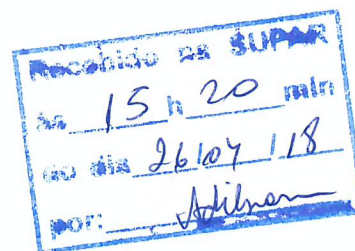 Recebido na SUPAR
às 15 h 20 min
do dia 26/04/18
por: